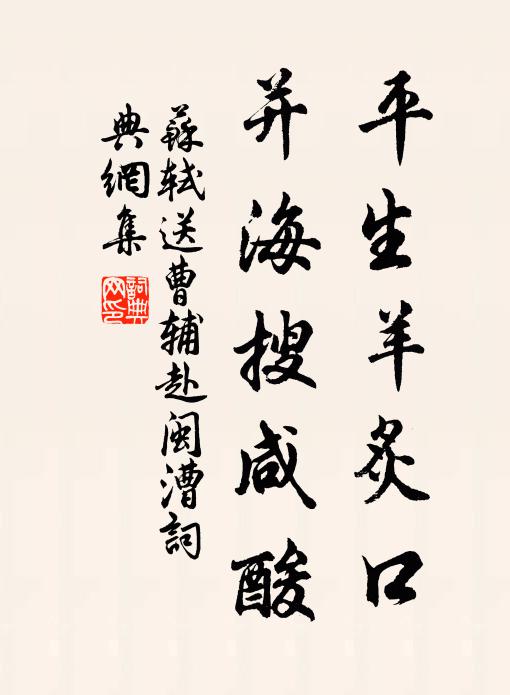 平生羊炙口
并海搜咸酸
蘇轼送曹辅赴闽漕詞
典網集
詞典网印